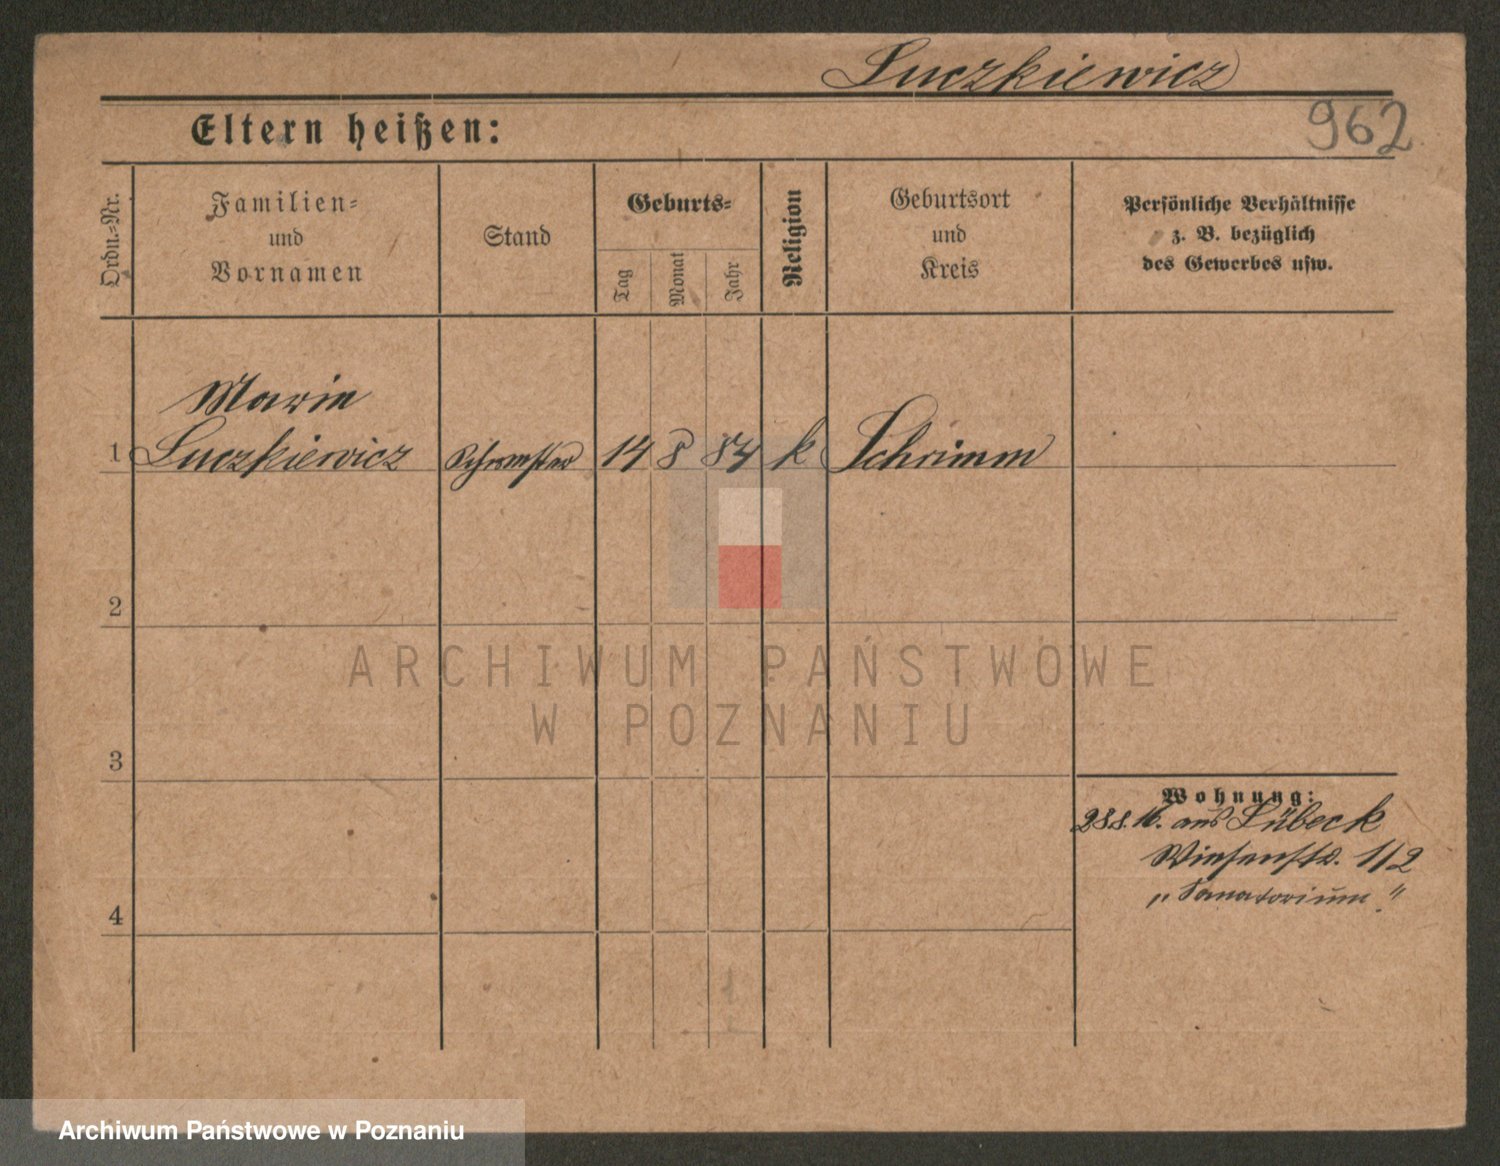 Luczkiewicz
962
Eltern heißen:
Ordn.=Nr.
Familien=
und
Vornamen
Stand
Geburts=
Tag
Monat
Jahr
Religion
Geburtsort
und
Kreis
Persönliche Verhältnisse
z. B. bezüglich
des Gewerbes usw.
Marie
1 Luczkiewicz Schwester 14 8 84 k Schrimm
2
ARCHIWUM PAŃSTWOWE
W POZNANIU
3
Wohnung:
28.8.16. aus Lübeck
Wiesenstr. 1/2
„Sanatorium."
4
Archiwum Państwowe w Poznaniu